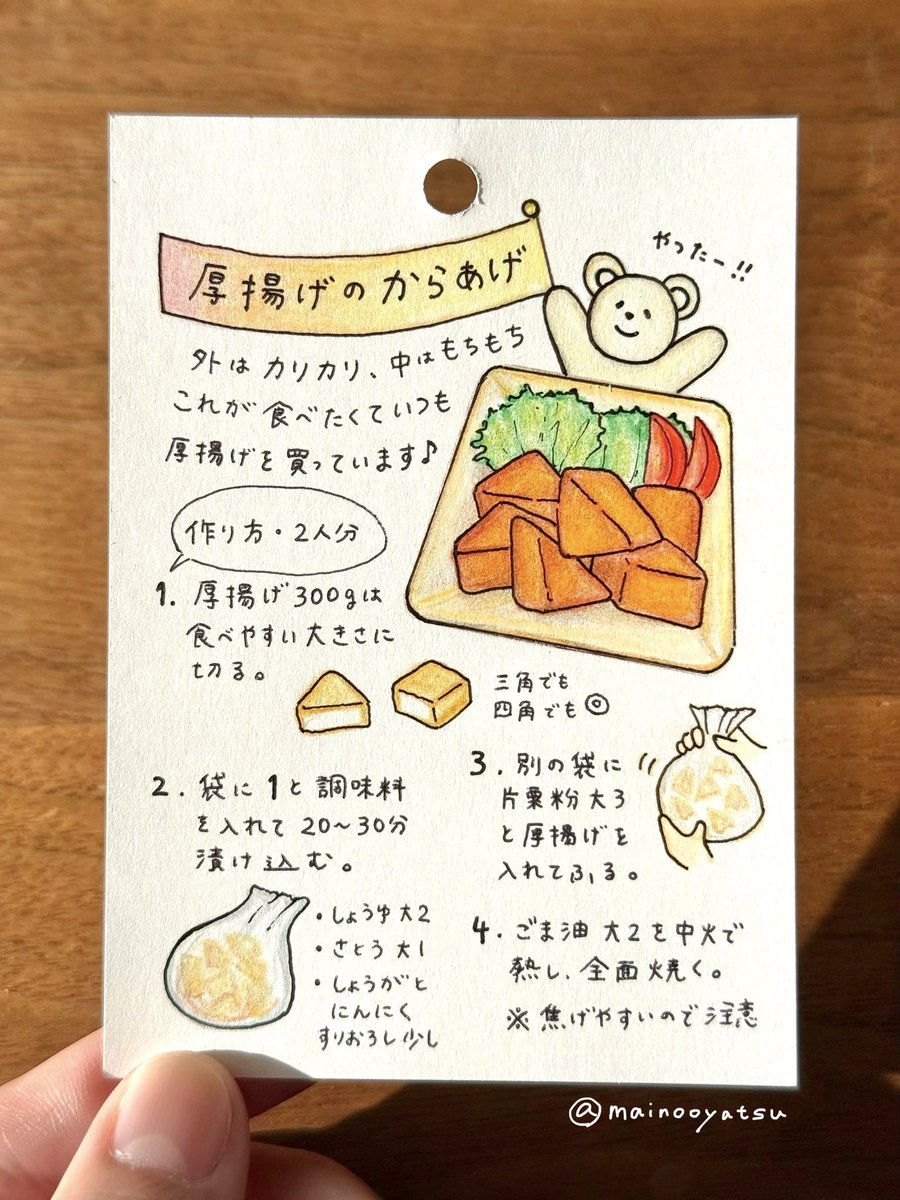 厚揚げのからあげ
やったー!!
外はカリカリ、中はもちもち
これが食べたくていつも
厚揚げを買っています♪
作り方・2人分
1. 厚揚げ300gは
食べやすい大きさに
切る。
三角でも
四角でも◎
2. 袋に1と調味料
を入れて20〜30分
漬け込む。
・しょうゆ大2
・さとう大1
・しょうがと
にんにく
すりおろし少し
3. 別の袋に
片栗粉大3
と厚揚げを
入れてふる。
4. ごま油大2を中火で
熱し、全面焼く。
※焦げやすいので注意
@mainooyatsu